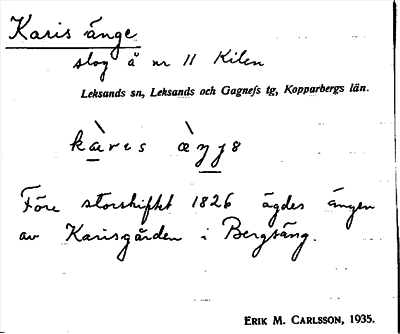 Karis änge
slog å nr 11 Kilen
Leksands sn, Leksands och Gagnefs tg, Kopparbergs län.
kàrɩs æ̀ŋɟ8
Före storskiftet 1826 ägdes ängen
av Karisgården i Bergsäng.
ERIK M. CARLSSON, 1935.